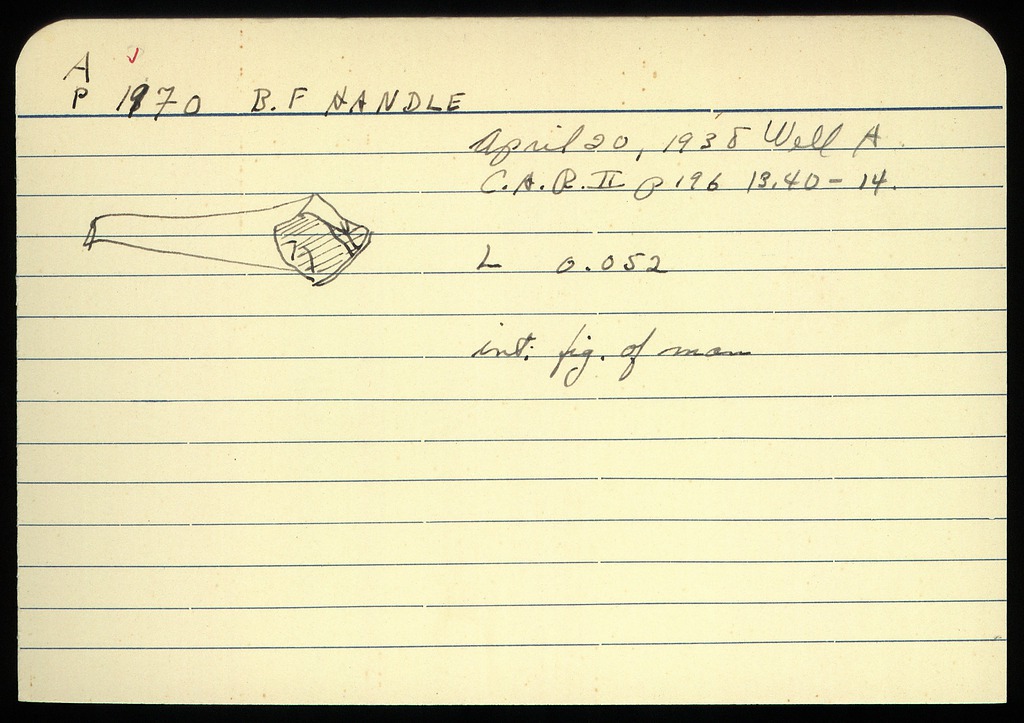 A ✓
P 1870 B.F HANDLE
April 20, 1938 Well A
C.A.R. II p 196 13.40 - 14.
L 0.052
int. fig. of man